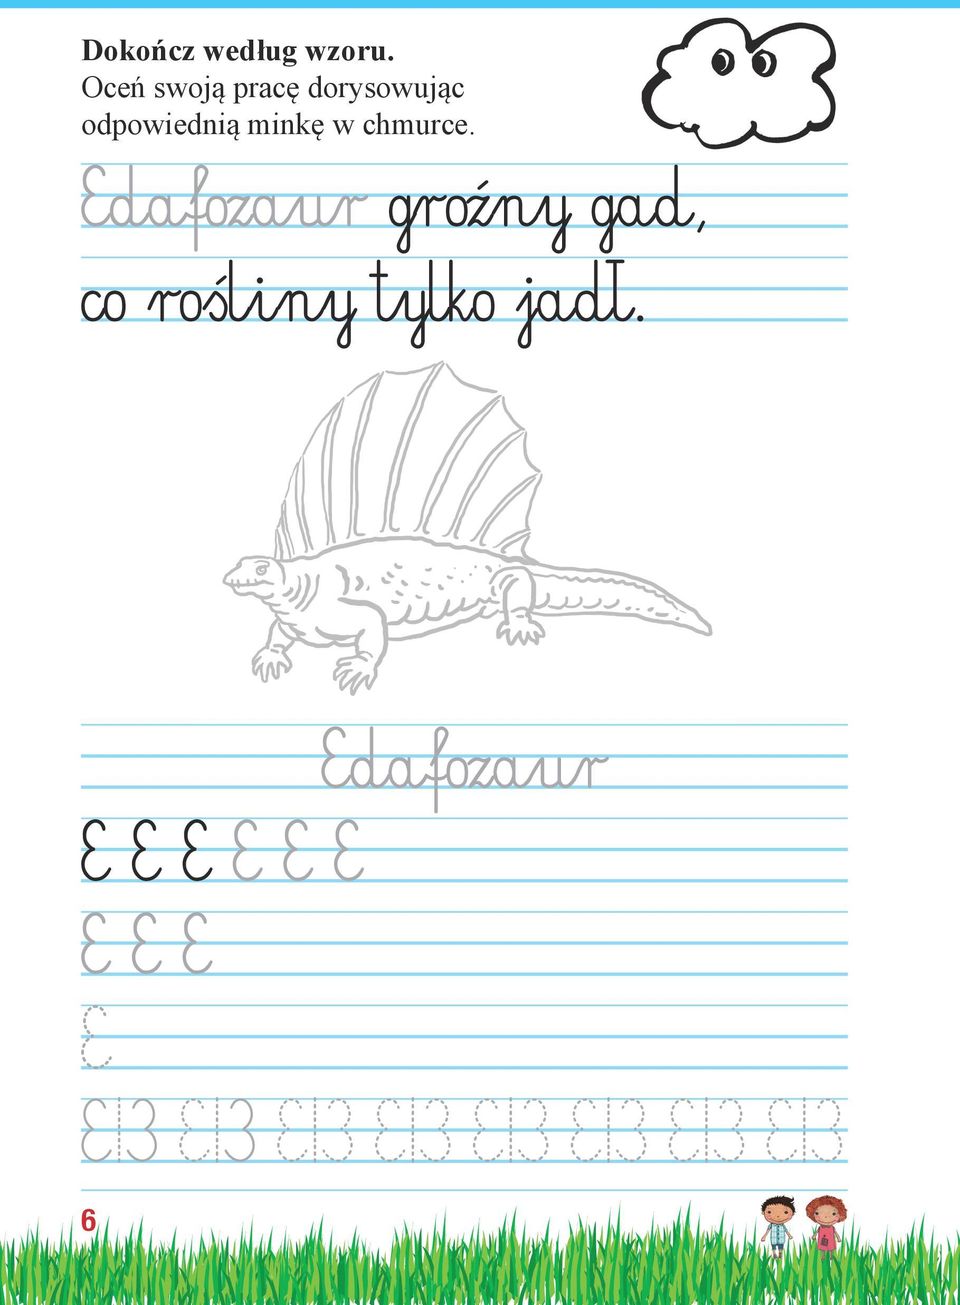 Dokończ według wzoru.
Oceń swoją pracę dorysowując
odpowiednią minkę w chmurce.
Edafozaur groźny gad,
co rośliny tylko jadł.
Edafozaur
E E E E E E
E E E
E
E|3 E|3 E|3 E|3 E|3 E|3 E|3 E|3
6